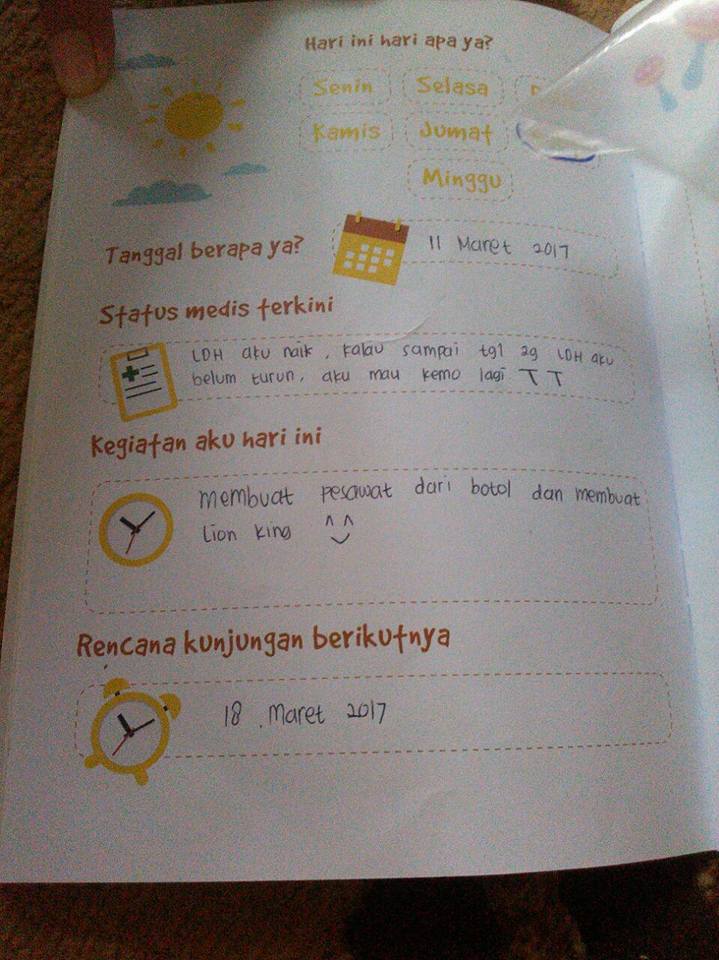 Hari ini hari apa ya?
Senin Selasa
Kamis Jumat
Minggu
Tanggal berapa ya?
11 Maret 2017
Status medis terkini
LDH aku naik, kalau sampai tgl 29 LDH aku
belum turun, aku mau kemo lagi T T
Kegiatan aku hari ini
membuat pesawat dari botol dan membuat
Lion king ^ ^
Rencana kunjungan berikutnya
18 Maret 2017